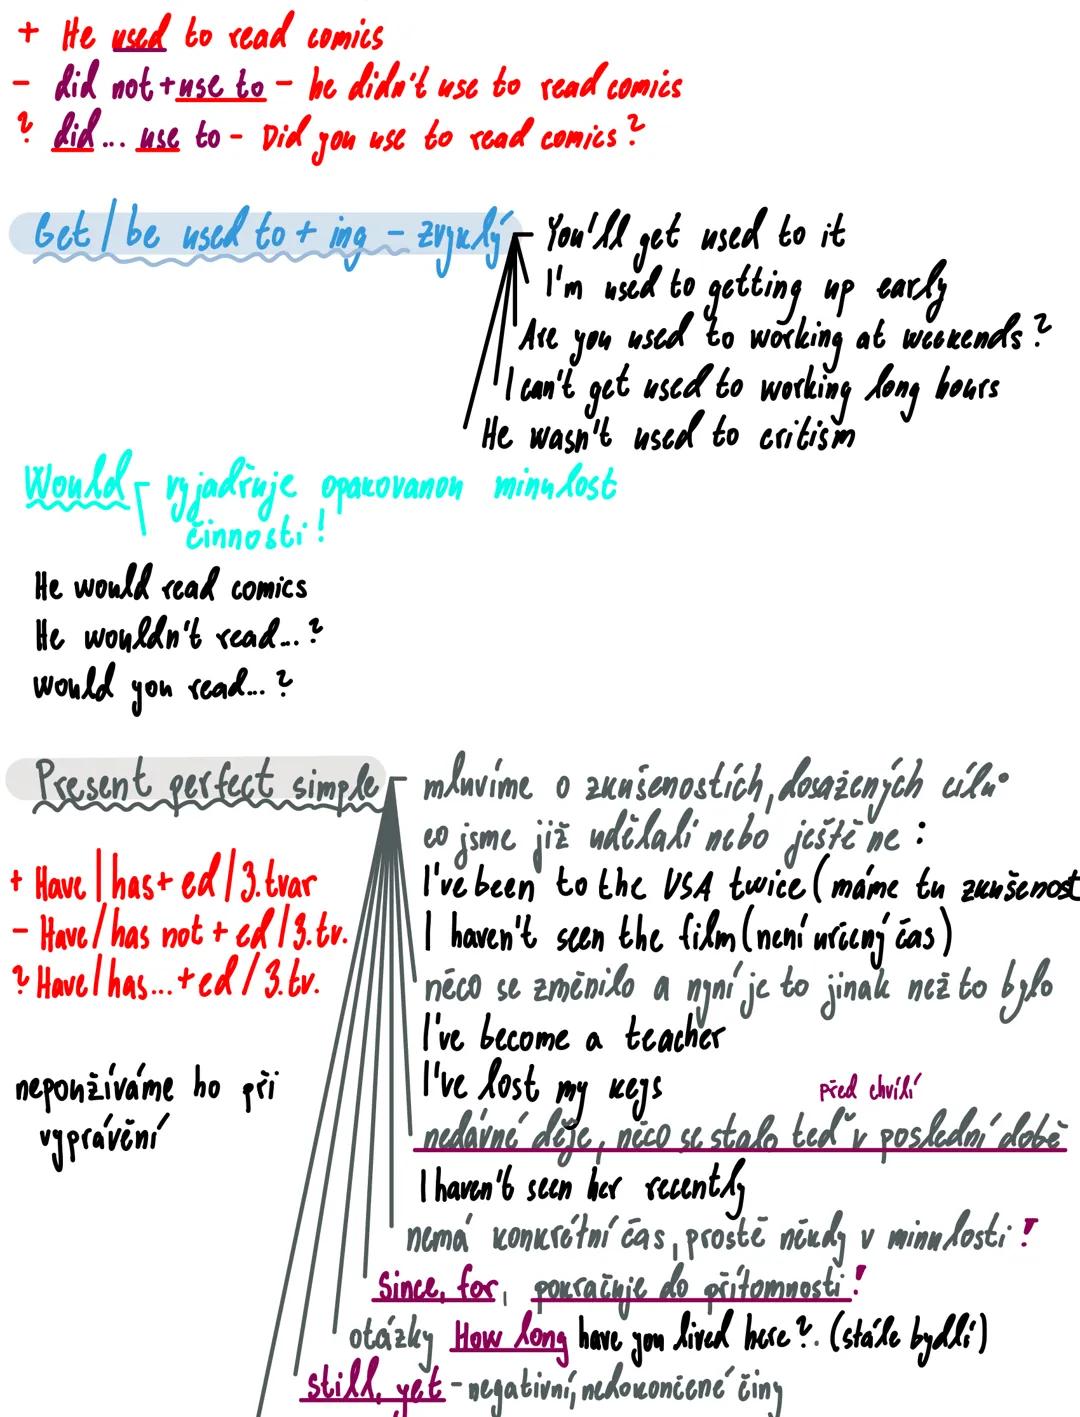 + He used to read comics
- did not + use to - he didn't use to read comics
? did ... use to - Did you use to read comics?
Get / be used to + ing - zvyklý
You'll get used to it
I'm used to getting up early
Are you used to working at weekends?
I can't get used to working long hours
He wasn't used to critism
Would - vyjadřuje opakovanou minulost
činnosti!
He would read comics
He wouldn't read...?
Would you read...?
Present perfect simple - mluvíme o zkušenostích, dosažených cílů
co jsme již udělali nebo ještě ne:
+ Have / has + ed / 3. tvar
I've been to the USA twice (máme tu zkušenost
- Have / has not + ed / 3. tv.
I haven't seen the film (není určený čas)
? Have / has... + ed / 3. tv.
něco se změnilo a nyní je to jinak než to bylo
I've become a teacher
nepoužíváme ho při
vyprávění
I've lost my keys
před chvílí
nedávné děje, něco se stalo teď v poslední době
I haven't seen her recently
nemá konkrétní čas, prostě někdy v minulosti!
since, for, pokračuje do přítomnosti!
otázky How long have you lived here?. (stále bydlí)
still, yet - negativní, nedokončené činy